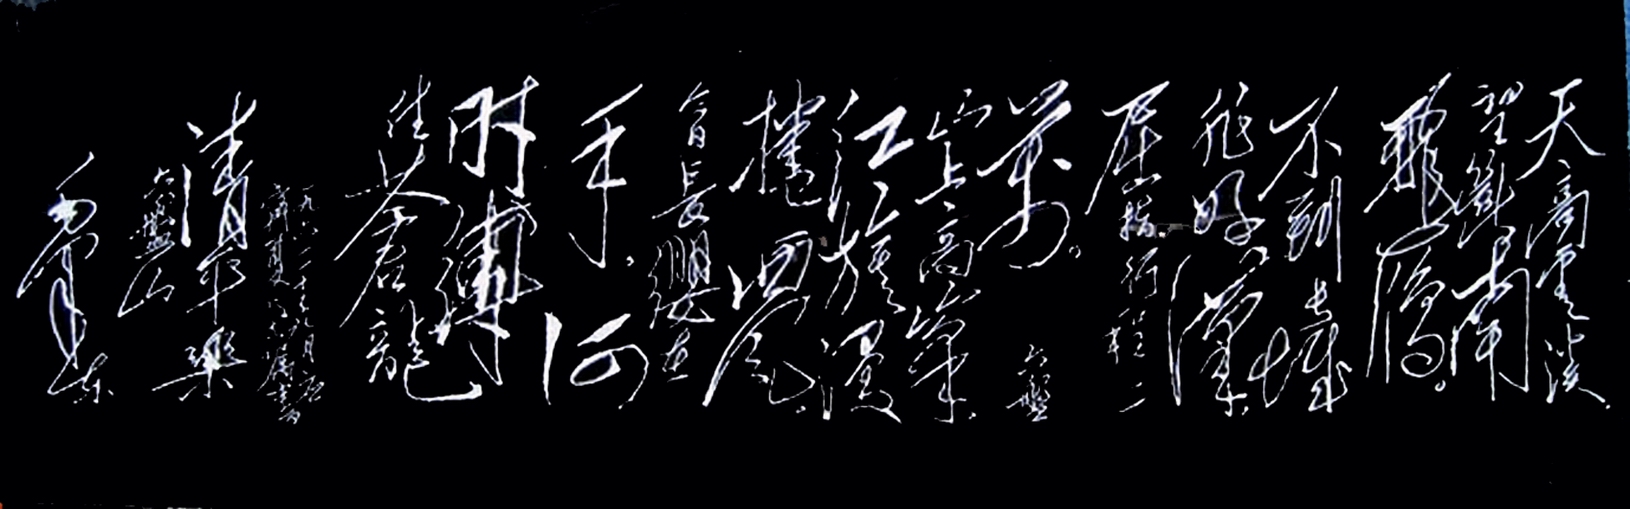 天高雲淡。
望斷南
飛雁。
不到長城
非好漢。
屈指行程二
萬。六盤
山上高峰。
紅旗漫
捲西風。
今日長纓在
手。何
時縛
住蒼龍
一九六一年九月應
寧夏同志囑書
清平樂
六盤山
毛澤東